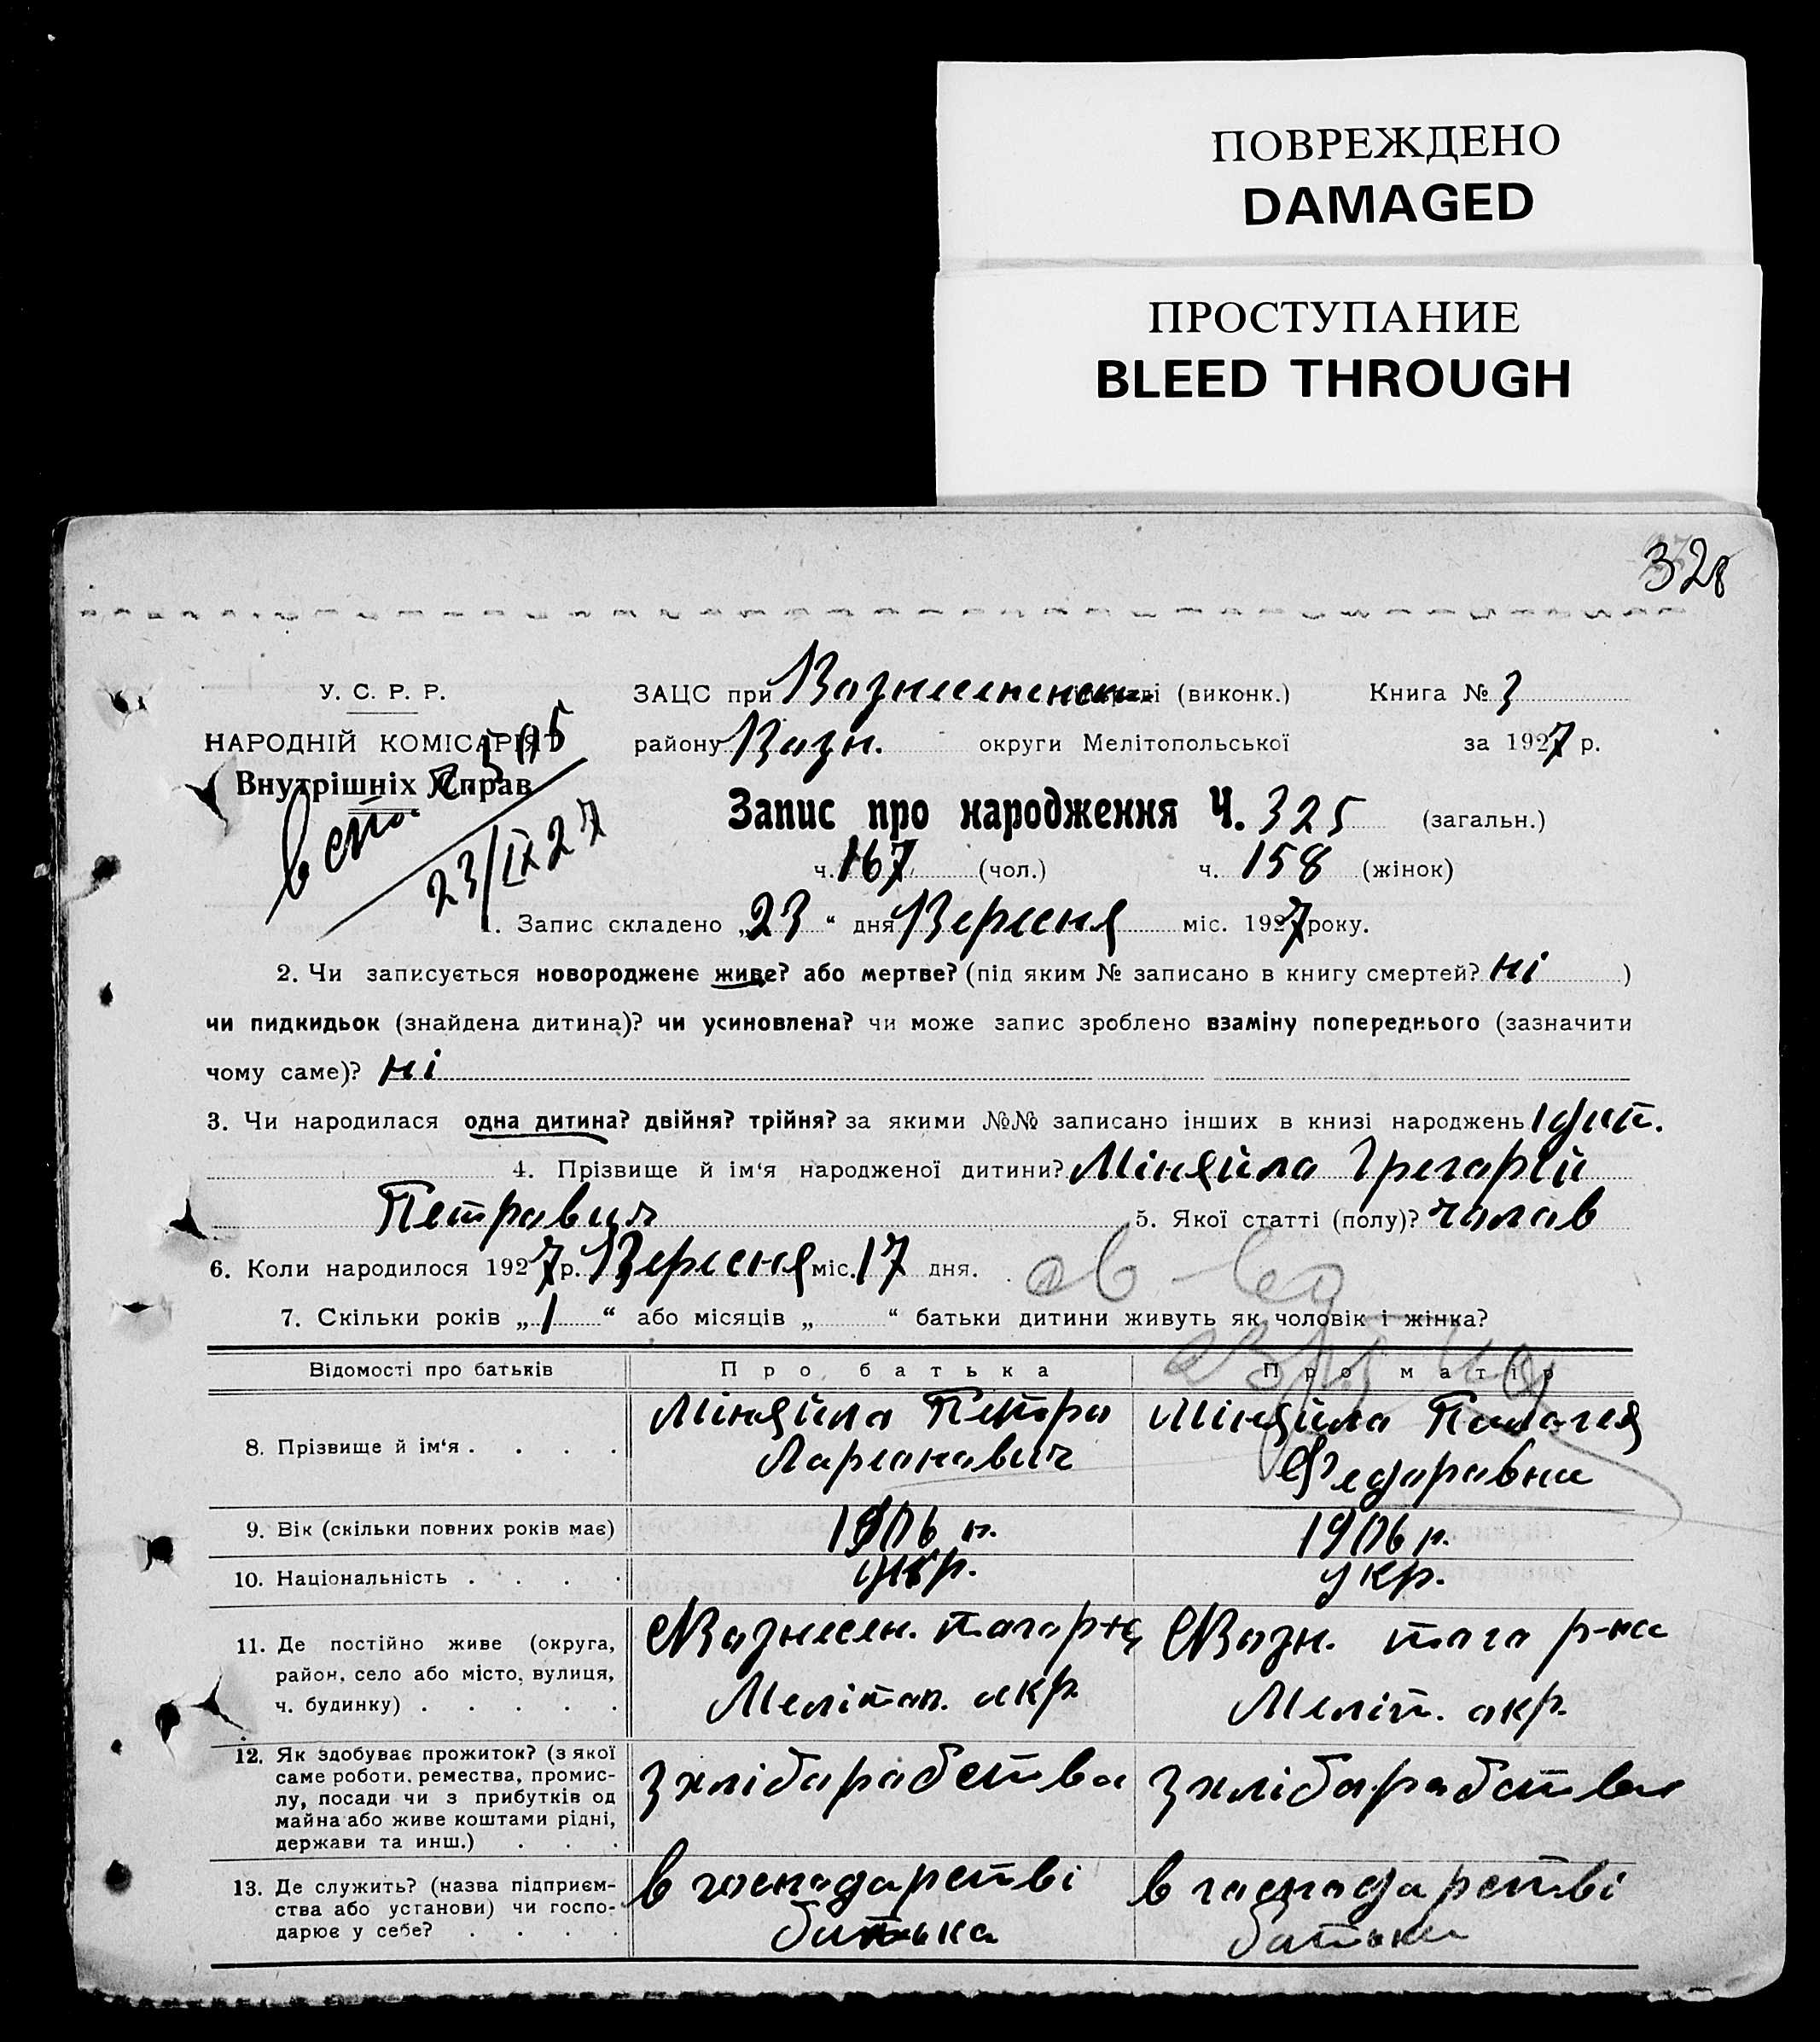 ПОВРЕЖДЕНО
DAMAGED
ПРОСТУПАНИЕ
BLEED THROUGH
328
У. С. Р. Р.
НАРОДНІЙ КОМІСАРІЯТ
Внутрішніх Справ
23/IX 27
ЗАЦС при Вознесенском (виконк.) Книга № 3
району Возн. округи Мелітопольської за 1927 р.
Запис про народження Ч. 325 (загальн.)
ч. 167 (чол.) ч. 158 (жінок)
1. Запис складено „23“ дня Вересня міс. 1927 року.
2. Чи записується новороджене живе? або мертве? (під яким № записано в книгу смертей? ні )
чи пидкидьок (знайдена дитина)? чи усиновлена? чи може запис зроблено взаміну попереднього (зазначити
чому саме)? ні
3. Чи народилася одна дитина? двійня? трійня? за якими №№ записано інших в книзі народжень 1 дит.
4. Прізвище й ім‘я народженої дитини? Міняйло Грегорій
Петрович 5. Якої статті (полу)? чолов
6. Коли народилося 1927 р. Вересня міс. 17 дня.
7. Скільки років „1“ або місяців „ “ батьки дитини живуть як чоловік і жінка?
Відомості про батьків Про батька Про матір
8. Прізвище й ім‘я . . . . Міняйло Петро Ларионович Міняйло Палагия Федоровна
9. Вік (скільки повних років має) 1906 р. 1906 р.
10. Національність . . . . укр. укр.
11. Де постійно живе (округа, район, село або місто, вулиця, ч. будинку) . . . . . с Вознесен. того р-на Мелітоп. окр. с Возн. того р-на Меліт. окр.
12. Як здобуває прожиток? (з якої саме роботи, ремества, промислу, посади чи з прибутків од майна або живе коштами рідні, держави та инш.) . . . з хліборобства з хліборобства
13. Де служить? (назва підприємства або установи) чи господарює у себе? . . . . в господарстві батька в господарстві батька